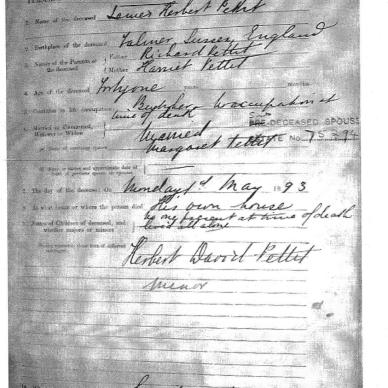 1. Name of the deceased Lower Herbert Pettit
2. Birthplace of the deceased Falmer, Sussex, England
3. Names of the Parents of the deceased Father Richard Pettit
Mother Harriet Pettit
4. Age of the deceased Fortyone years months
Butcher No occupation at
time of death
PRE-DECEASED SPOUSE
ESTATE No 75294
Married or Unmarried, Widower or Widow Married
Margaret Pettit
7. The day of the decease On Monday 1st May 1893
8. In what house or where the person died His own house
Names of Children of deceased, and whether majors or minors no one present at time of death
lived all alone
Herbert David Pettit
Minor